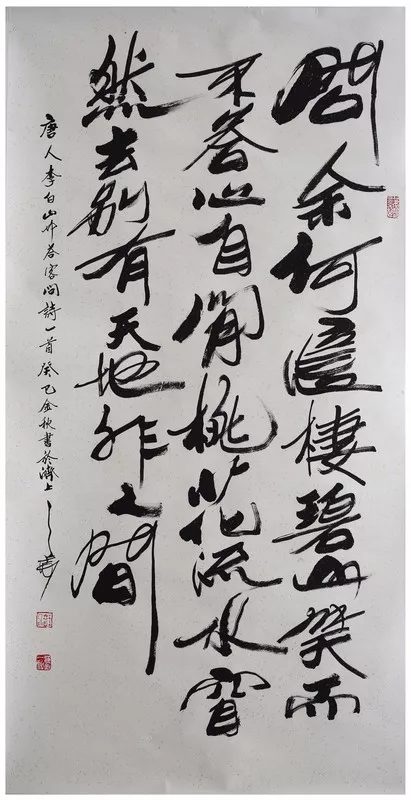 問余何意棲碧山笑而
不答心自閒桃花流水窅
然去別有天地非人間
唐人李白山中答客問詩一首癸巳金秋書於濟上